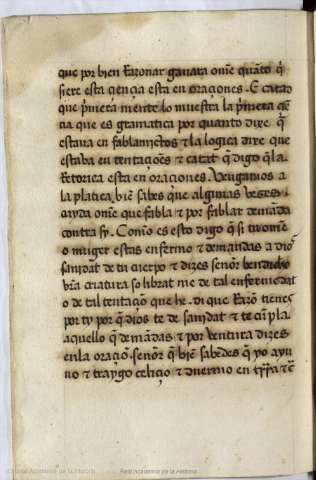 que por bien Razonar ganara ome quãto q̃
siere esta çiençia esta en oraçiones. E catad
que p̃mera mente lo muestra la p̃mera
çia que es gramatica por quanto dixe q̃
estaua en fablamiẽtos ⁊ la logica dixe que
estaba en tentaçioẽs ⁊ catat q̃ digo q̃ la
Retorica esta en oraçiones. Vengamos a
la platica biẽ sabes que algunas vezes
cuyda ome que fabla ⁊ por fablar demãda
contra sy. Como es esto digo q̃ si tu ome
o muger estas enfermo ⁊ demandas a dios
sanidat de tu cuerpo ⁊ dizes señor bendicho
vr̃a criatura so librat me de tal enfermedat
o de tal tentaçioñ que he. di que Razõ tienes
por ty por q̃ dios te de sanidat ⁊ te cũpla
aquello q̃ demãdas ⁊ por ventura dizes
en la oraçioñ señor q̃ biẽ sabedes que yo ayu
no ⁊ traygo celiçio ⁊ duermo en tr̃ra ⁊ c̃
Real Academia de la Historia